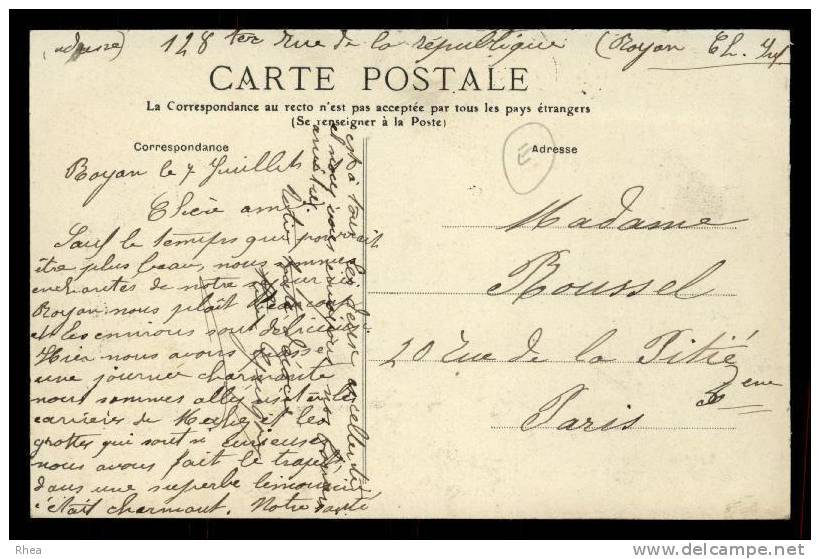 (adresse) 128 ter rue de la république (Royan Ch. Inf
CARTE POSTALE
La Correspondance au recto n'est pas acceptée par tous les pays étrangers
(Se renseigner à la Poste)
Correspondance
Adresse
E
Royan le 7 Juillet
Chère amie
Sauf le temps qui pourrait
être plus beau, nous sommes
enchantés de notre séjour ici
Royan nous plaît beaucoup
et les environs sont délicieux
Hier nous avons passé
une journée charmante
nous sommes allés visiter les
carrières de Meches et les
grottes qui sont si curieuses
nous avons fait le trajet
dans une superbe limousine
c'était charmant. Notre santé
est à tous les deux excellente
et nous vous envoyons nos
amitiés
Madame
Roussel
20 rue de la Pitié
5eme
Paris
Rhea
www.delcampe.net